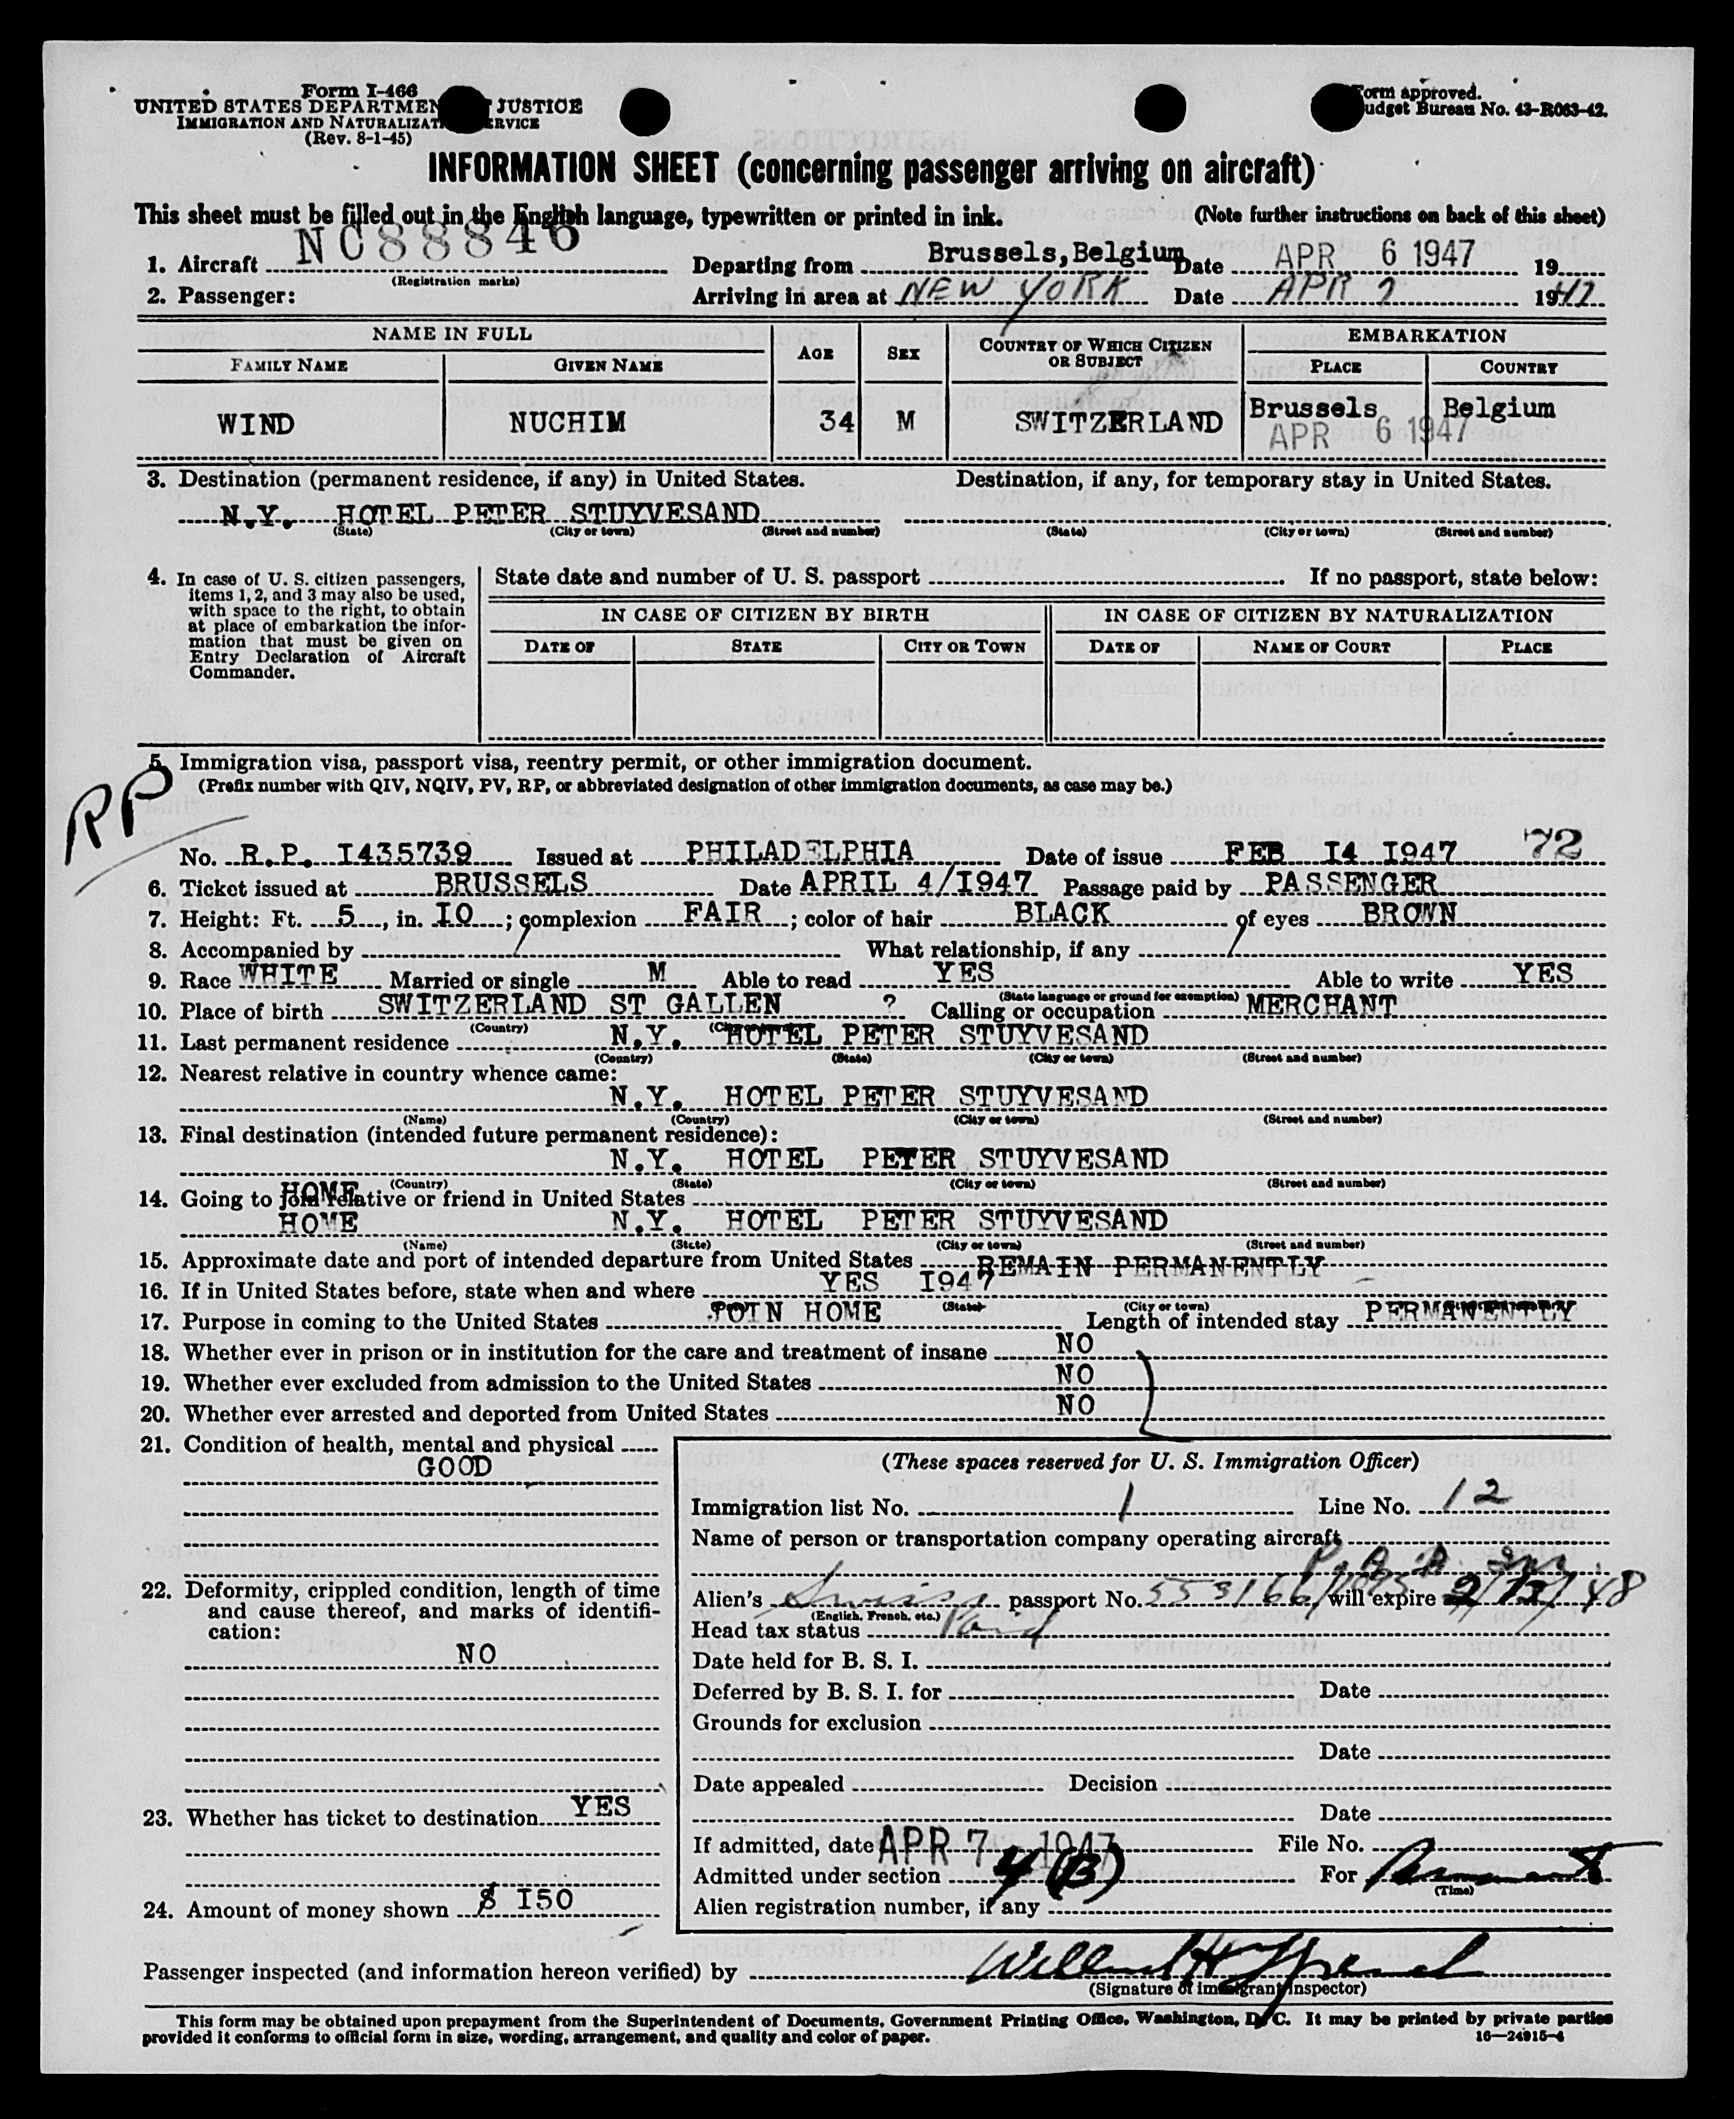 Form I-466
UNITED STATES DEPARTMEN JUSTICE
IMMIGRATION AND NATURALIZAT ERVICE
(Rev. 8-1-45)
Form approved.
udget Bureau No. 43-R063-42.
INFORMATION SHEET (concerning passenger arriving on aircraft)
This sheet must be filled out in the English language, typewritten or printed in ink. (Note further instructions on back of this sheet)
1. Aircraft NC88846 Departing from Brussels, Belgium Date APR 6 1947 19
(Registration marks)
2. Passenger: Arriving in area at NEW YORK Date APR 7 1947
NAME IN FULL AGE SEX COUNTRY OF WHICH CITIZEN OR SUBJECT EMBARKATION
FAMILY NAME GIVEN NAME PLACE COUNTRY
WIND NUCHIM 34 M SWITZERLAND Brussels Belgium
APR 6 1947
3. Destination (permanent residence, if any) in United States. Destination, if any, for temporary stay in United States.
N.Y. HOTEL PETER STUYVESAND
(State) (City or town) (Street and number) (State) (City or town) (Street and number)
4. In case of U. S. citizen passengers, items 1, 2, and 3 may also be used, with space to the right, to obtain at place of embarkation the information that must be given on Entry Declaration of Aircraft Commander.
State date and number of U. S. passport If no passport, state below:
IN CASE OF CITIZEN BY BIRTH IN CASE OF CITIZEN BY NATURALIZATION
DATE OF STATE CITY OR TOWN DATE OF NAME OF COURT PLACE
5. Immigration visa, passport visa, reentry permit, or other immigration document.
(Prefix number with QIV, NQIV, PV, RP, or abbreviated designation of other immigration documents, as case may be.)
RP
No. R.P. I435739 Issued at PHILADELPHIA Date of issue FEB I4 I947 72
6. Ticket issued at BRUSSELS Date APRIL 4/I947 Passage paid by PASSENGER
7. Height: Ft. 5, in. IO; complexion FAIR; color of hair BLACK of eyes BROWN
8. Accompanied by / What relationship, if any /
9. Race WHITE Married or single M Able to read YES Able to write YES
(State language or ground for exemption)
10. Place of birth SWITZERLAND ST GALLEN ? Calling or occupation MERCHANT
(Country) (City or town)
11. Last permanent residence N.Y. HOTEL PETER STUYVESAND
(Country) (State) (City or town) (Street and number)
12. Nearest relative in country whence came:
N.Y. HOTEL PETER STUYVESAND
(Name) (Country) (City or town) (Street and number)
13. Final destination (intended future permanent residence):
N.Y. HOTEL PETER STUYVESAND
(Country) (State) (City or town) (Street and number)
14. Going to join relative or friend in United States
HOME
HOME N.Y. HOTEL PETER STUYVESAND
(Name) (State) (City or town) (Street and number)
15. Approximate date and port of intended departure from United States REMAIN PERMANENTLY
16. If in United States before, state when and where YES I947
(State) (City or town)
17. Purpose in coming to the United States JOIN HOME Length of intended stay PERMANENTLY
18. Whether ever in prison or in institution for the care and treatment of insane NO
19. Whether ever excluded from admission to the United States NO
20. Whether ever arrested and deported from United States NO
21. Condition of health, mental and physical
GOOD
22. Deformity, crippled condition, length of time and cause thereof, and marks of identification:
NO
23. Whether has ticket to destination YES
24. Amount of money shown $ I50
(These spaces reserved for U. S. Immigration Officer)
Immigration list No. 1 Line No. 12
Name of person or transportation company operating aircraft
P. A. A.
Alien's Swiss passport No. will expire 2/13/48
(English, French, etc.)
Head tax status Paid
Date held for B. S. I.
Deferred by B. S. I. for Date
Grounds for exclusion
Date
Date appealed Decision
Date
If admitted, date APR 7 1947 File No.
Admitted under section 4(B) For Permanent
(Time)
Alien registration number, if any
Passenger inspected (and information hereon verified) by
(Signature of immigrant inspector)
This form may be obtained upon prepayment from the Superintendent of Documents, Government Printing Office, Washington, D. C. It may be printed by private parties
provided it conforms to official form in size, wording, arrangement, and quality and color of paper. 16—24915-4